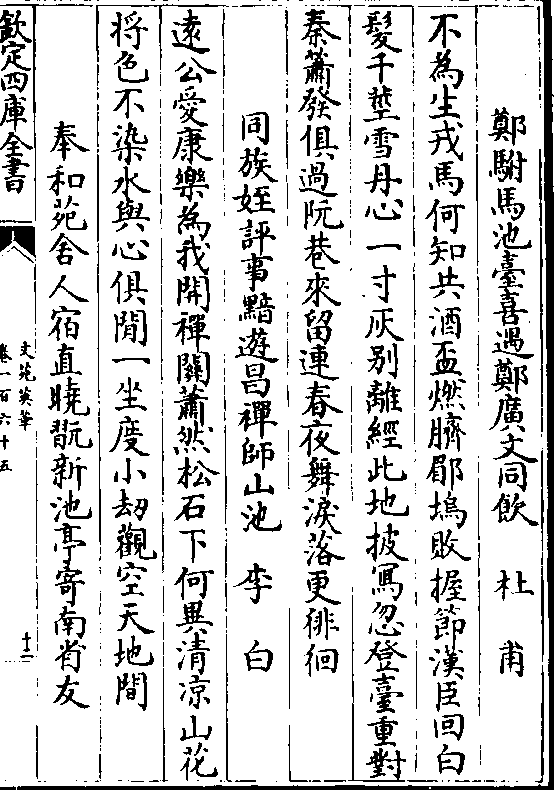 鄭駙馬池臺喜遇鄭廣文同飲　杜甫
不為生戎馬何知共酒盃燃臍郿塢敗握節漢臣回白
髮千莖雪丹心一寸灰别離經此地披寫忽登臺重對
秦簫發俱過阮巷來留連春夜舞淚落更徘徊
同族姪評事黯遊昌禪師山池　李白
逺公愛康樂為我開禪關蕭然松石下何異清凉山花
将色不染水與心俱閒一坐度小劫觀空天地間
奉和苑舍人宿直曉翫新池亭寄南省友
欽定四庫全書
文苑英華
卷一百六十五
十二